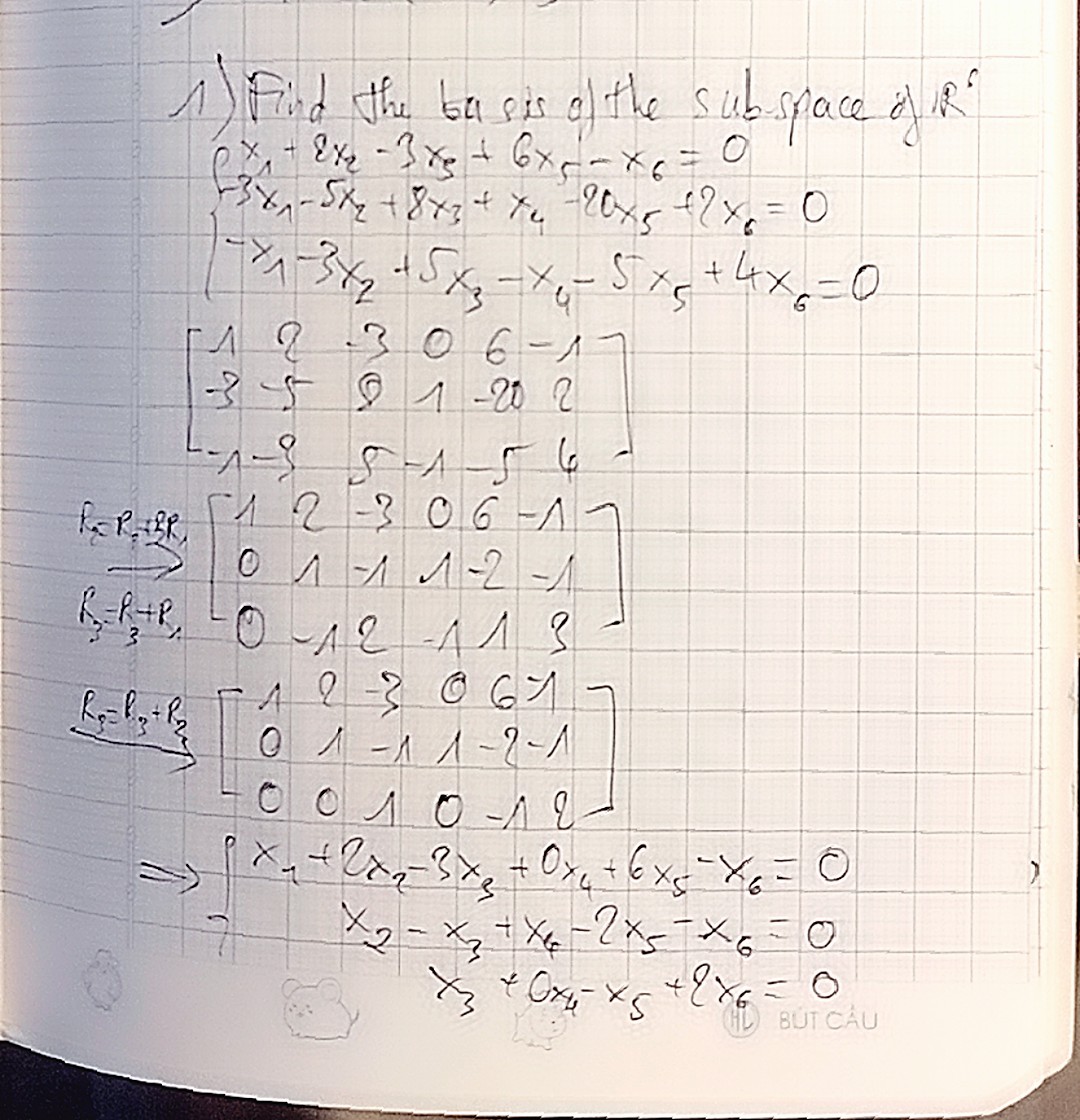 1) Find the basis of the subspace of ℝ⁶
x₁ + 2x₂ - 3x₃ + 6x₅ - x₆ = 0
-3x₁ - 5x₂ + 8x₃ + x₄ - 20x₅ + 2x₆ = 0
-x₁ - 3x₂ + 5x₃ - x₄ - 5x₅ + 4x₆ = 0
1 2 -3 0 6 -1
-3 -5 8 1 -20 2
-1 -3 5 -1 -5 4
R₂=R₂+3R₁
R₃=R₃+R₁
1 2 -3 0 6 -1
0 1 -1 1 -2 -1
0 -1 2 -1 1 3
R₃=R₃+R₂
1 2 -3 0 6 -1
0 1 -1 1 -2 -1
0 0 1 0 -1 2
⇒ x₁ + 2x₂ - 3x₃ + 0x₄ + 6x₅ - x₆ = 0
x₂ - x₃ + x₄ - 2x₅ - x₆ = 0
x₃ + 0x₄ - x₅ + 2x₆ = 0
HL BÚT CÂU